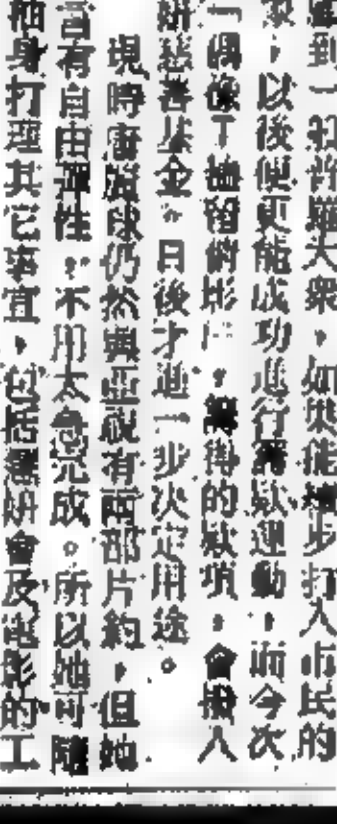 到一般普羅大衆，如果能逐步打入市民的
，以後便更能成功進行籌款運動，而今次
「偶像T恤留俏影」，獲得的款項，會撥入
妍慈善基金。日後才進一步决定用途。
現時唐麗球仍然與亞視有兩部片約，但她
言有自由彈性，不用太急完成。所以她可隨
抽身打理其它事宜，包括麗妍會及電影的工